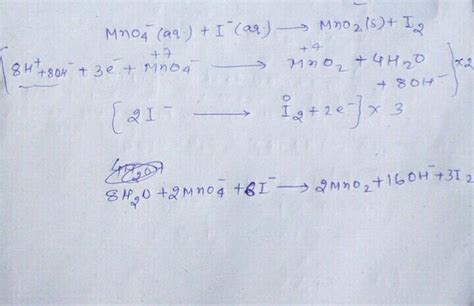 MnO₄⁻(aq) + I⁻(aq) → MnO₂(s) + I₂
[8H⁺ + 8OH⁻ + 3e⁻ + MnO₄⁻ → MnO₂ + 4H₂O + 8OH⁻] × 2
+7 +4
[2I⁻ → I₂ + 2e⁻] × 3
0
8H₂O + 2MnO₄⁻ + 6I⁻ → 2MnO₂ + 16OH⁻ + 3I₂